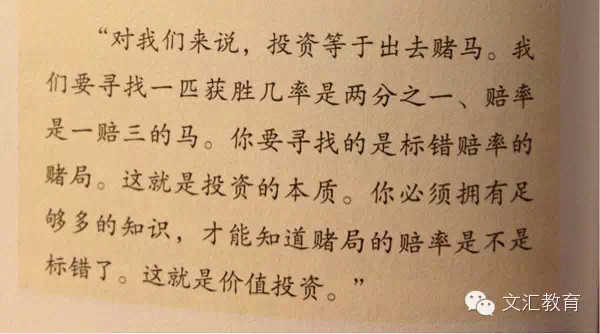 “对我们来说，投资等于出去赌马。我
们要寻找一匹获胜几率是两分之一、赔率
是一赔三的马。你要寻找的是标错赔率的
赌局。这就是投资的本质。你必须拥有足
够多的知识，才能知道赌局的赔率是不是
标错了。这就是价值投资。”
文汇教育